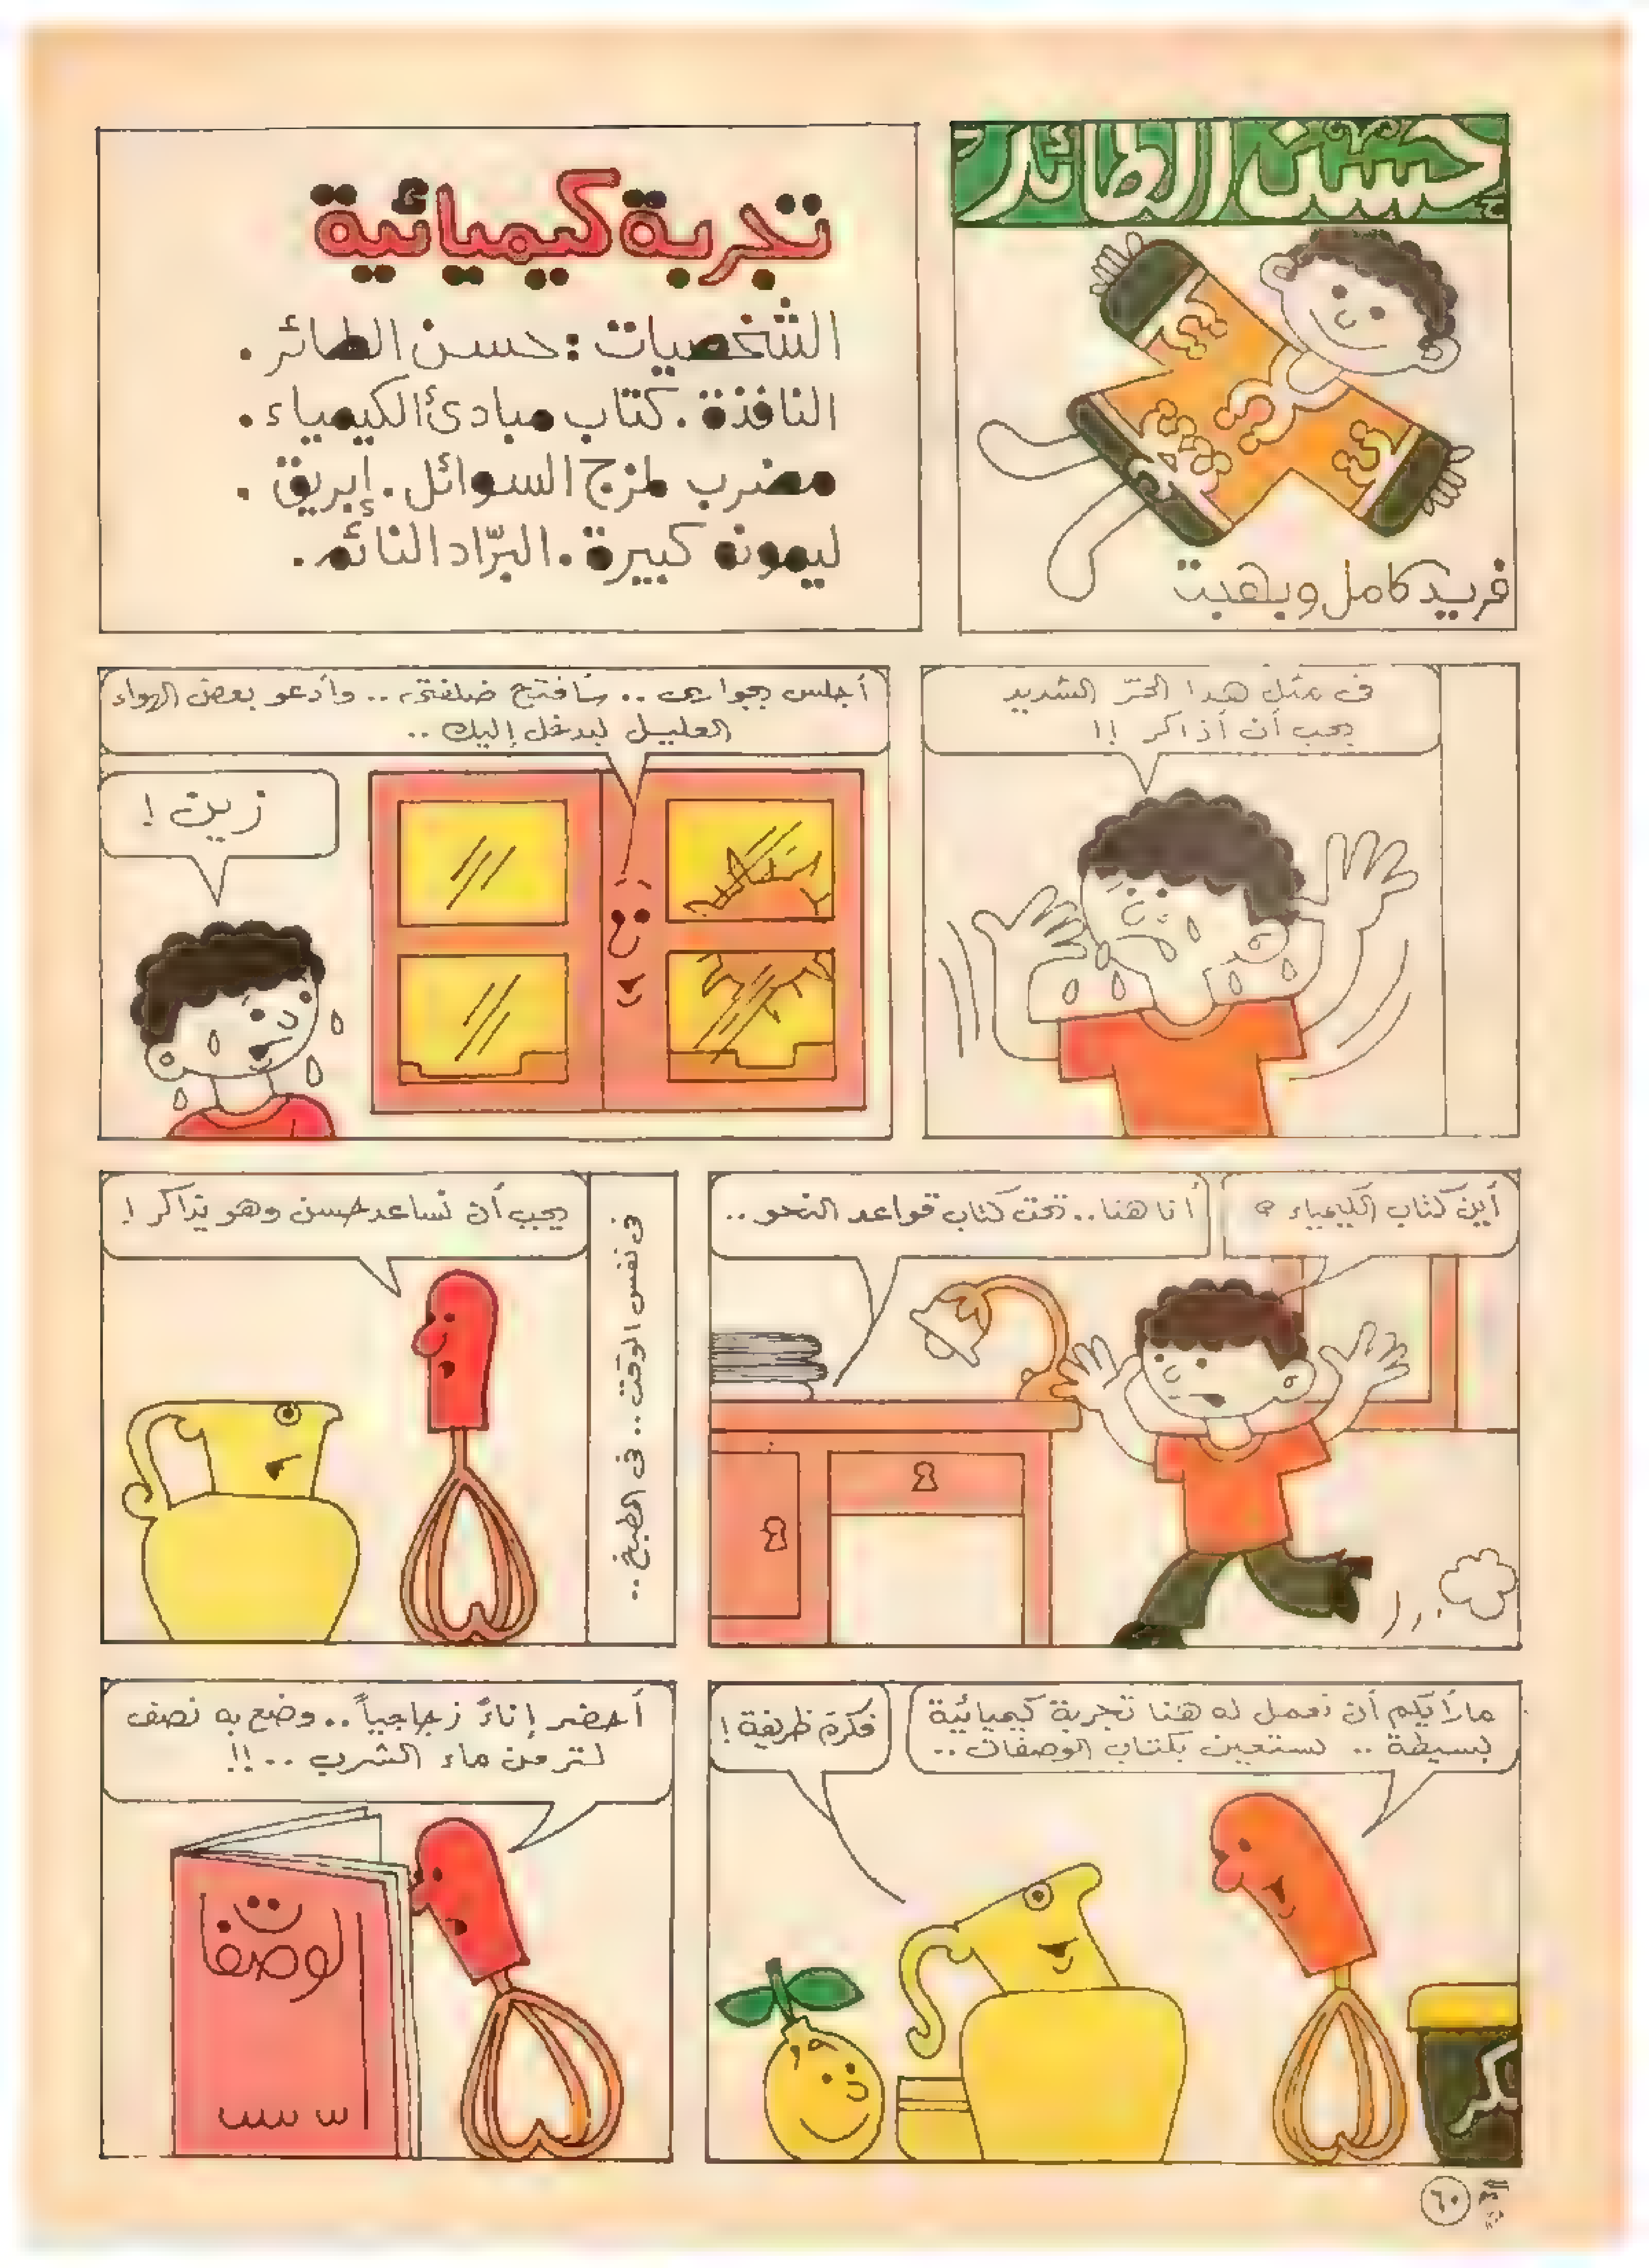 حسن الطائر
فريد كامل وبهجت
تجربة كيميائية
الشخصيات : حسن الطائر .
النافذة . كتاب مبادئ الكيمياء .
مضرب لمزج السوائل . إبريق .
ليمونه كبيرة . البرّاد النائم .
فى مثل هذا الحرّ الشديد
يجب أن أذاكر !!
أجلس بجوارى .. سأفتح ضلفتى .. وأدعو بعض الهواء
العليل ليدخل إليك ..
زين !
أين كتاب الكيمياء ؟
أنا هنا .. تحت كتاب قواعد النحو ..
فى نفس الوقت .. فى المطبخ ..
يجب أن نساعد حسن وهو يذاكر !
ما رأيكم أن نعمل له هنا تجربة كيميائية
بسيطة .. نستعين بكتاب الوصفات ..
فكرة ظريفة !
سكر
أحضر إناءً زجاجياً .. وضع به نصف
لتر من ماء الشرب .. !!
الوصفات
٦٠